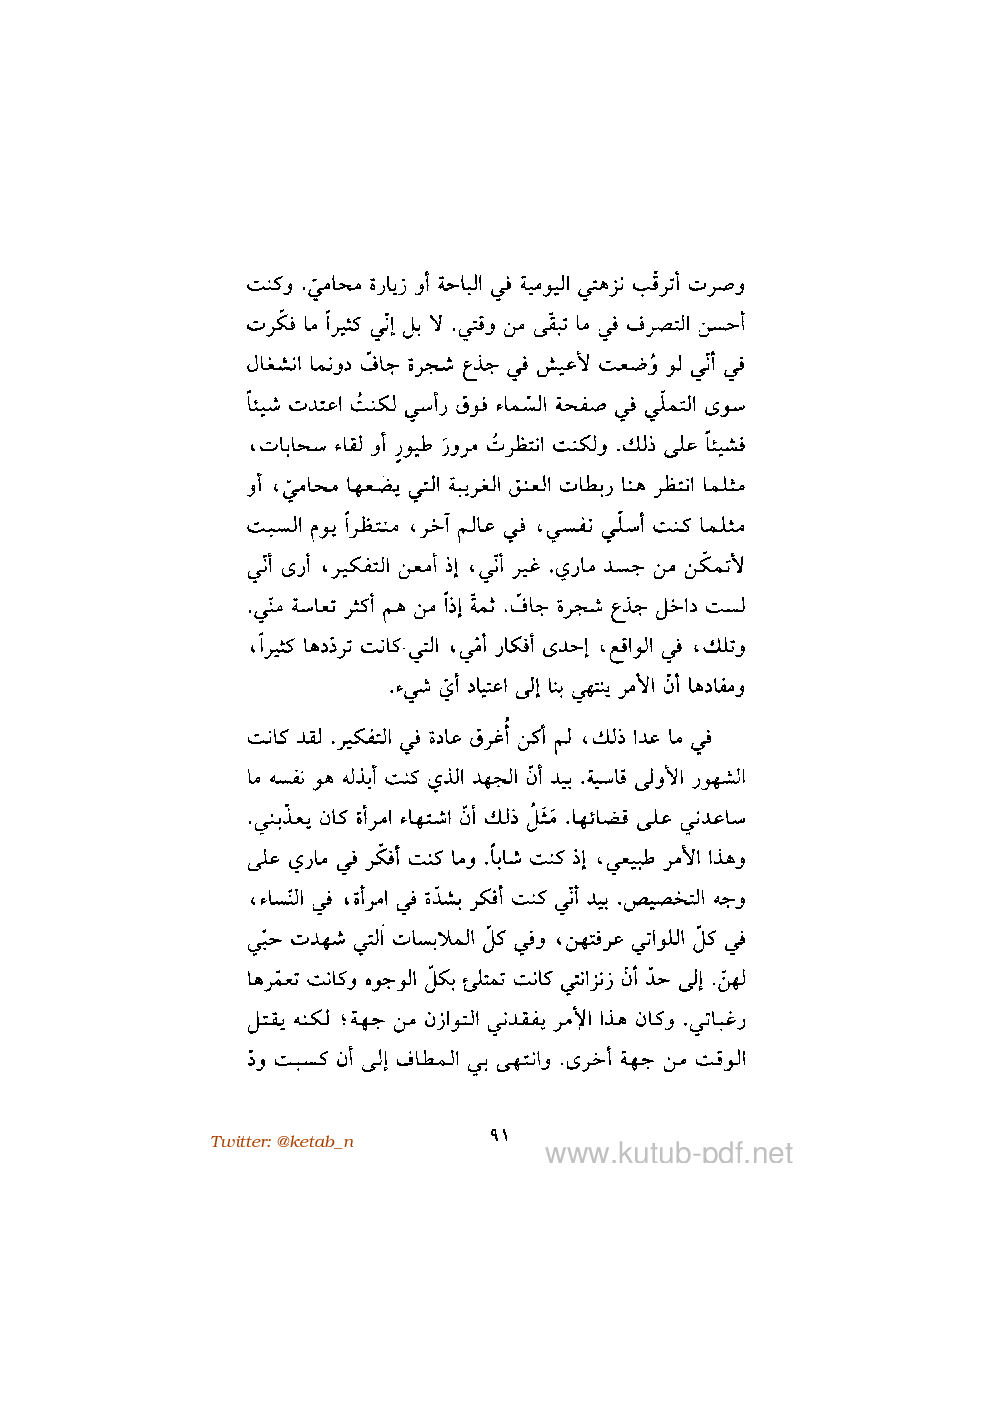 وصرت أترقّب نزهتي اليومية في الباحة أو زيارة محاميّ. وكنت
أحسن التصرف في ما تبقّى من وقتي. لا بل إنّني كثيراً ما فكّرت
في أنّني لو وُضعت لأعيش في جذع شجرة جافّ دونما انشغال
سوى التملّي في صفحة السّماء فوق رأسي لكنتُ اعتدت شيئاً
فشيئاً على ذلك. ولكنت انتظرتُ مرورَ طيورٍ أو لقاء سحابات،
مثلما انتظر هنا ربطات العنق الغريبة التي يضعها محاميّ، أو
مثلما كنت أسلّي نفسي، في عالم آخر، منتظراً يوم السبت
لأتمكّن من جسد ماري. غير أنّني، إذ أمعن التفكير، أرى أنّني
لست داخل جذع شجرة جافّ. ثمةّ إذاً من هم أكثر تعاسة منّي.
وتلك، في الواقع، إحدى أفكار أمّي، التي كانت تردّدها كثيراً،
ومفادها أنّ الأمر ينتهي بنا إلى اعتياد أيّ شيء.
في ما عدا ذلك، لم أكن أُغرق عادة في التفكير. لقد كانت
الشهور الأولى قاسية. بيد أنّ الجهد الذي كنت أبذله هو نفسه ما
ساعدني على قضائها. مَثَلُ ذلك أنّ اشتهاء امرأة كان يعذّبني.
وهذا الأمر طبيعي، إذ كنت شاباً. وما كنت أفكّر في ماري على
وجه التخصيص. بيد أنّني كنت أفكر بشدّة في امرأة، في النّساء،
في كلّ اللواتي عرفتهن، وفي كلّ الملابسات التي شهدت حبّي
لهنّ. إلى حدّ أنّ زنزانتي كانت تمتلئ بكلّ الوجوه وكانت تعمّرها
رغباتي. وكان هذا الأمر يفقدني التوازن من جهة؛ لكنه يقتل
الوقت من جهة أخرى. وانتهى بي المطاف إلى أن كسبت ودّ
٩١
Twitter: @ketab_n
www.kutub-pdf.net